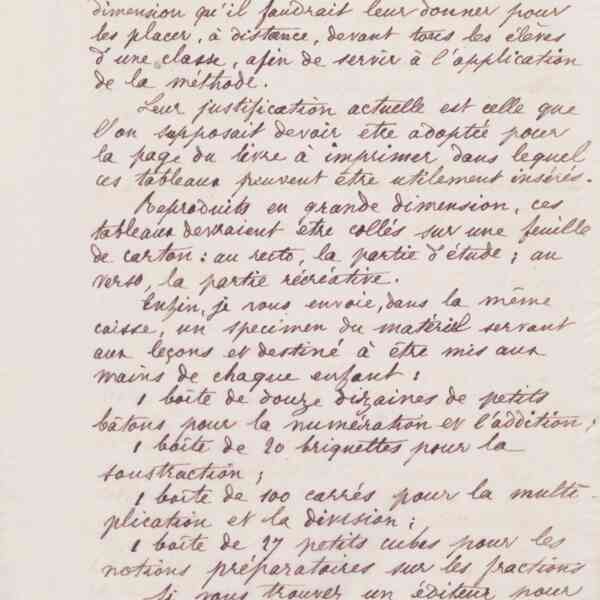 dimension qu'il faudrait leur donner pour
les placer, à distance, devant tous les élèves
d'une classe, afin de servir à l'application
de la méthode.
Leur justification actuelle est celle que
l'on supposait devoir être adoptée pour
la page du livre à imprimer dans lequel
ces tableaux peuvent être utilement insérés.
Reproduits en grande dimension, ces
tableaux devraient être collés sur une feuille
de carton : au recto, la partie d'étude ; au
verso, la partie récréative.
Enfin, je vous envoie, dans la même
caisse, un specimen du matériel servant
aux leçons et destiné à être mis aux
mains de chaque enfant :
1 boîte de douze dizaines de petits
bâtons, pour la numération et l'addition ;
1 boîte de 20 briquettes pour la
soustraction ;
1 boîte de 100 carrés pour la multi-
plication et la division ;
1 boîte de 27 petits cubes pour les
notions préparatoires sur les fractions
Si vous trouver un éditeur pour